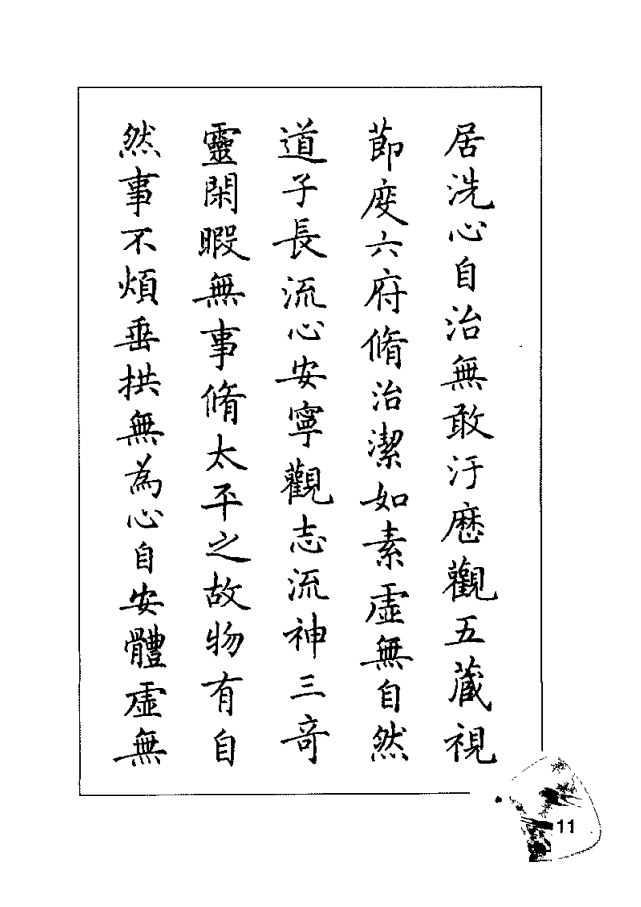 居洗心自治無敢汙歷觀五藏視
節度六府脩治潔如素虛無自然
道子長流心安寧觀志流神三奇
靈閑暇無事脩太平之故物有自
然事不煩垂拱無為心自安體虛無
11